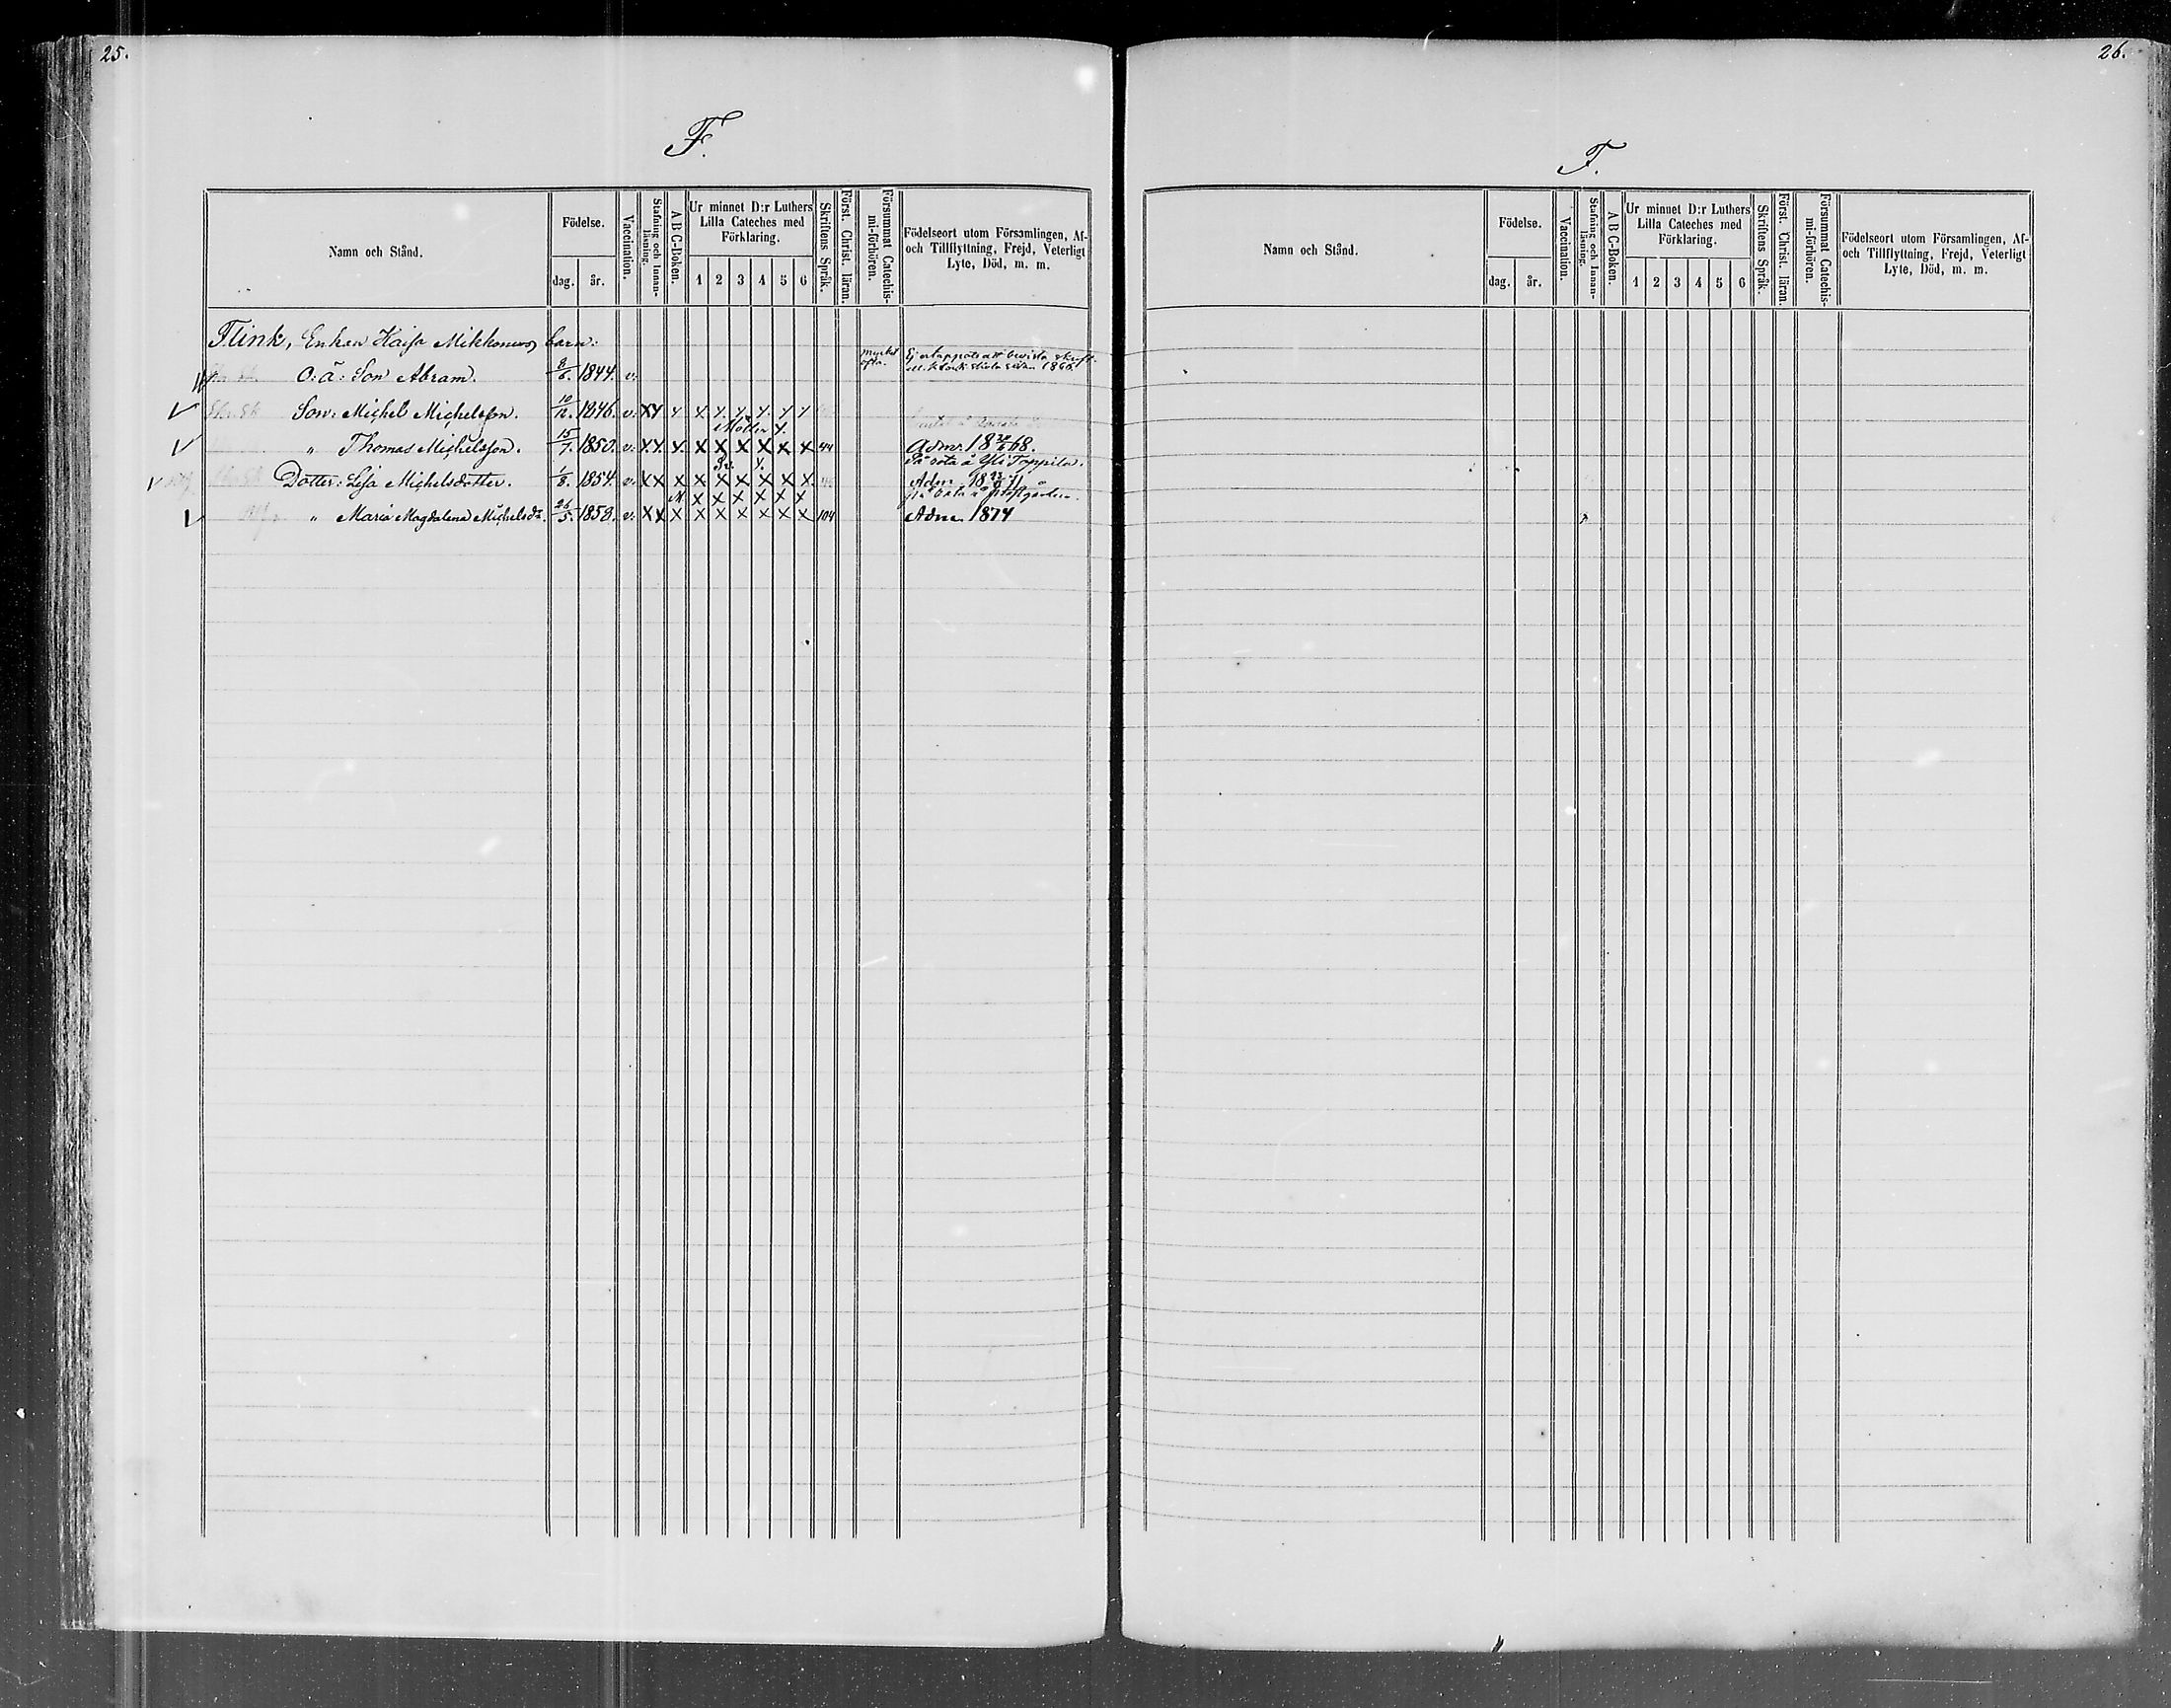 25.
F.
Namn och Stånd.
Födelse.
dag.
år.
Vaccination.
Stafning och Innanläsning.
A B C-Boken.
Ur minnet D:r Luthers
Lilla Cateches med
Förklaring.
1 2 3 4 5 6
Skriftens Språk.
Först. Christ. läran.
Försummat Catechismi-förhören.
Födelseort utom Församlingen, Af-
och Tillflyttning, Frejd, Veterligt
Lyte, Död, m. m.
Flink, Enkan Kaisa Mikkonens barn:
O. ä: Son Abram. 8/6. 1844. v: mycket ofta.
Son: Michel Michelsson. 10/12. 1846. v:
" Thomas Michelsson. 15/7. 1850. v: Adm. 18 68.
På orta å Yli Toppila.
Dotter: Lisa Michelsdotter. 1/8. 1854. v: Adm. 18 71
" Maria Magdalena Michelsdr. 26/5. 1858. v: 104 Adm. 1874
26.
F.
Namn och Stånd.
Födelse.
dag.
år.
Vaccination.
Stafning och Innanläsning.
A B C-Boken.
Ur minnet D:r Luthers
Lilla Cateches med
Förklaring.
1 2 3 4 5 6
Skriftens Språk.
Först. Christ. läran.
Försummat Catechismi-förhören.
Födelseort utom Församlingen, Af-
och Tillflyttning, Frejd, Veterligt
Lyte, Död, m. m.